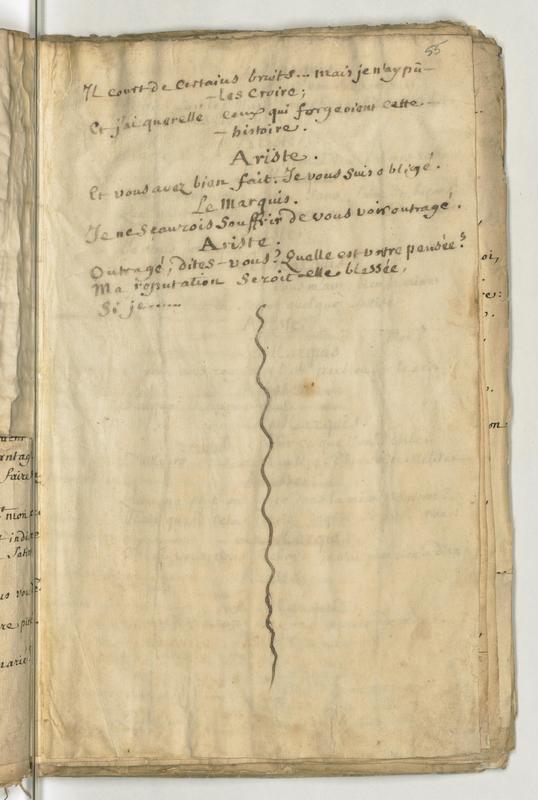 55
Il court de certains bruits... mais je n'ay pû
les croire;
Et j'ai querellé ceux qui forgeoient cette
histoire.
Ariste.
Et vous avez bien fait. Je vous suis obligé.
Le Marquis.
Je ne sçaurois souffrir de vous voir outragé.
Ariste.
Outragé, dites-vous? Quelle est votre pensée?
Ma réputation seroit-elle blessée,
Si je......